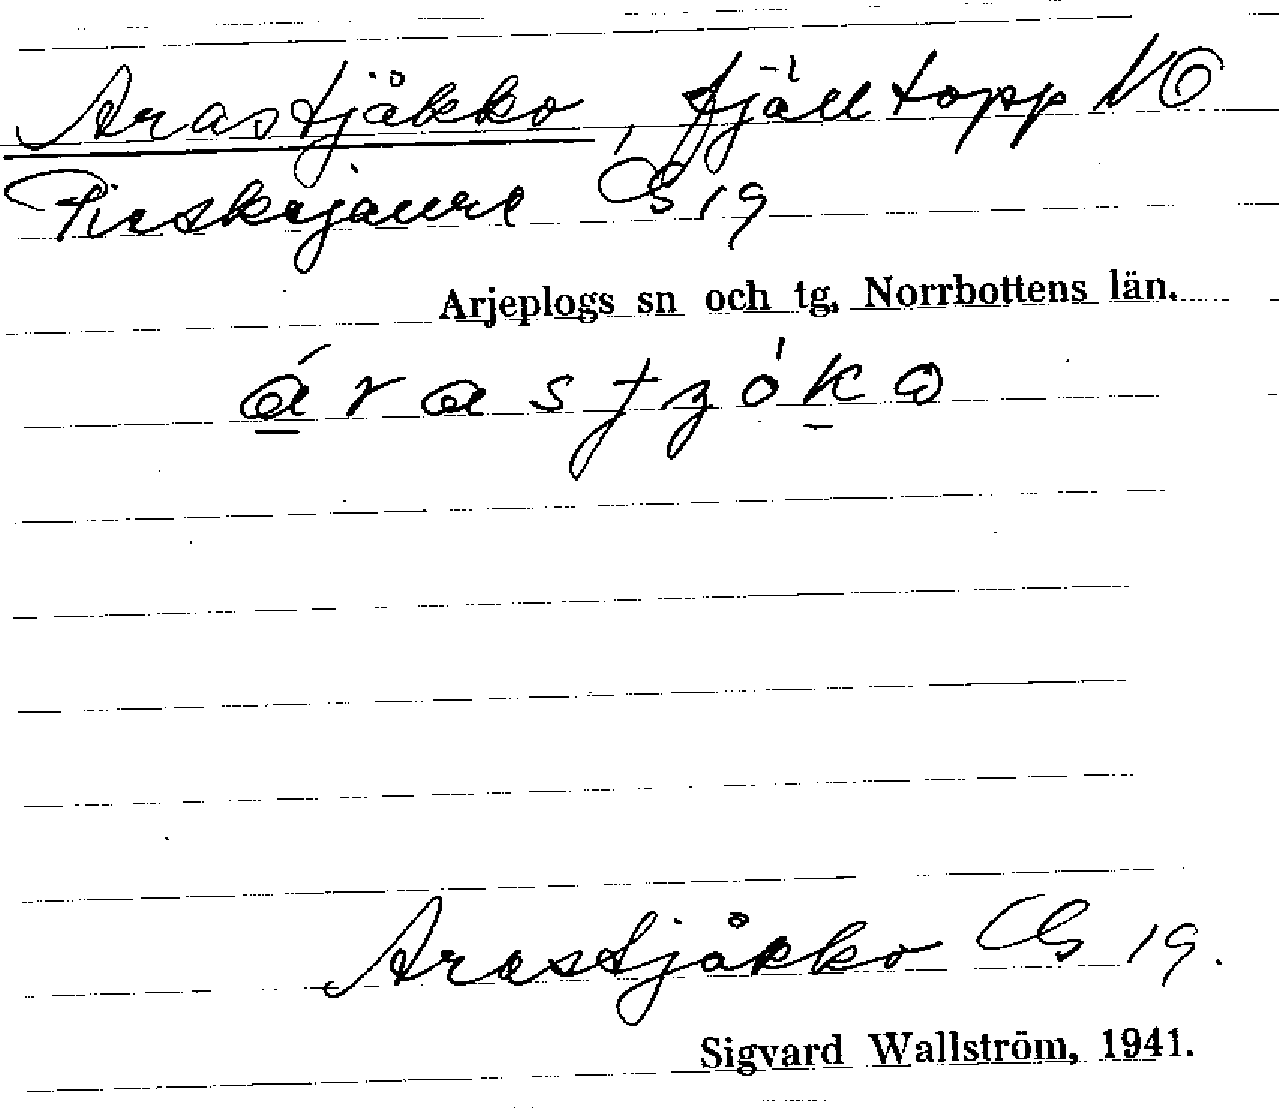 Arastjåkko, fjälltopp NO
Pieskejaure GS 19
Arjeplogs sn och tg. Norrbottens län.
Arastjåkko GS 19.
Sigvard Wallström, 1941.